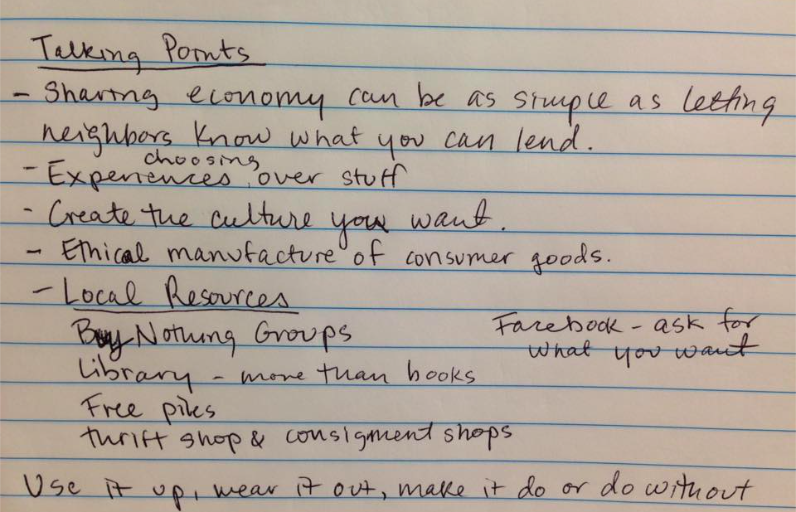 Talking Points
- Sharing economy can be as simple as letting
neighbors know what you can lend.
choosing
- Experiences over stuff
- Create the culture you want.
- Ethical manufacture of consumer goods.
- Local Resources
Buy Nothing Groups
Facebook - ask for
what you want
Library - more than books
Free piles
thrift shop & consigment shops
Use it up, wear it out, make it do or do without